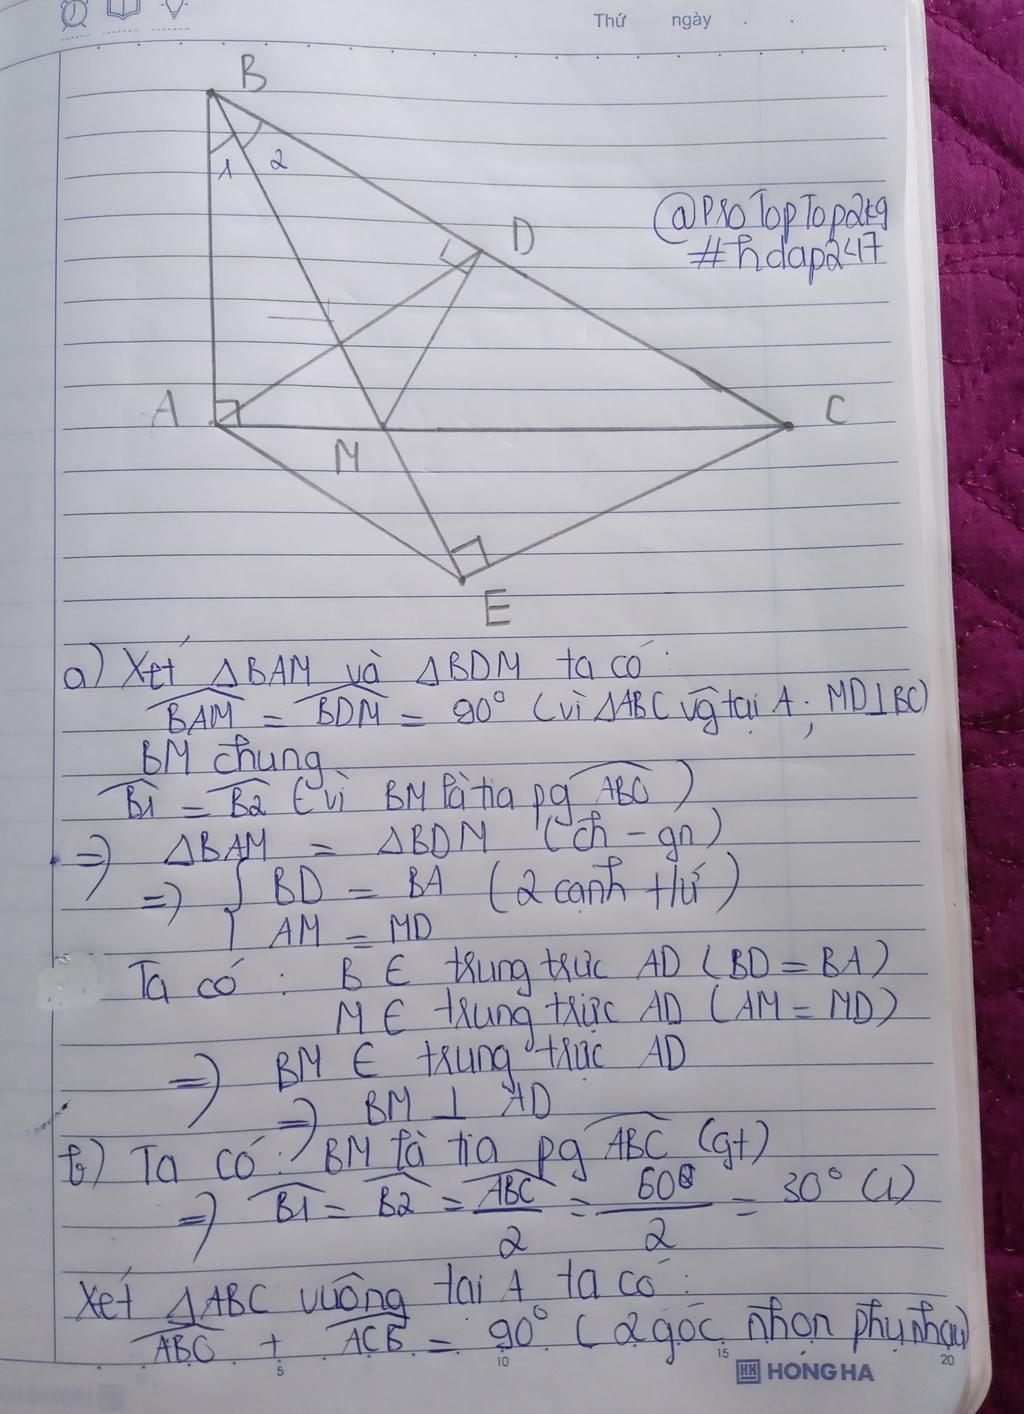 Thứ ngày . .
B
1 2
D
@ProTopTop2k9
#hdap247
A
M
C
E
a) Xét ΔBAM và ΔBDM ta có:
BAM = BDM = 90° (vì ΔABC vg tại A; MD⊥BC)
BM chung
B1 = B2 (vì BM là tia pg ABC)
=> ΔBAM = ΔBDM (ch - gn)
=> { BD = BA (2 cạnh t/ứ)
AM = MD
Ta có: B ∈ trung trực AD (BD = BA)
M ∈ trung trực AD (AM = MD)
=> BM ∈ trung trực AD
=> BM ⊥ AD
b) Ta có: BM là tia pg ABC (gt)
=> B1 = B2 = ABC/2 = 60°/2 = 30° (1)
Xét ΔABC vuông tại A ta có:
ABC + ACB = 90° (2 góc nhọn phụ nhau)
5 10 15 20
HH HONG HA